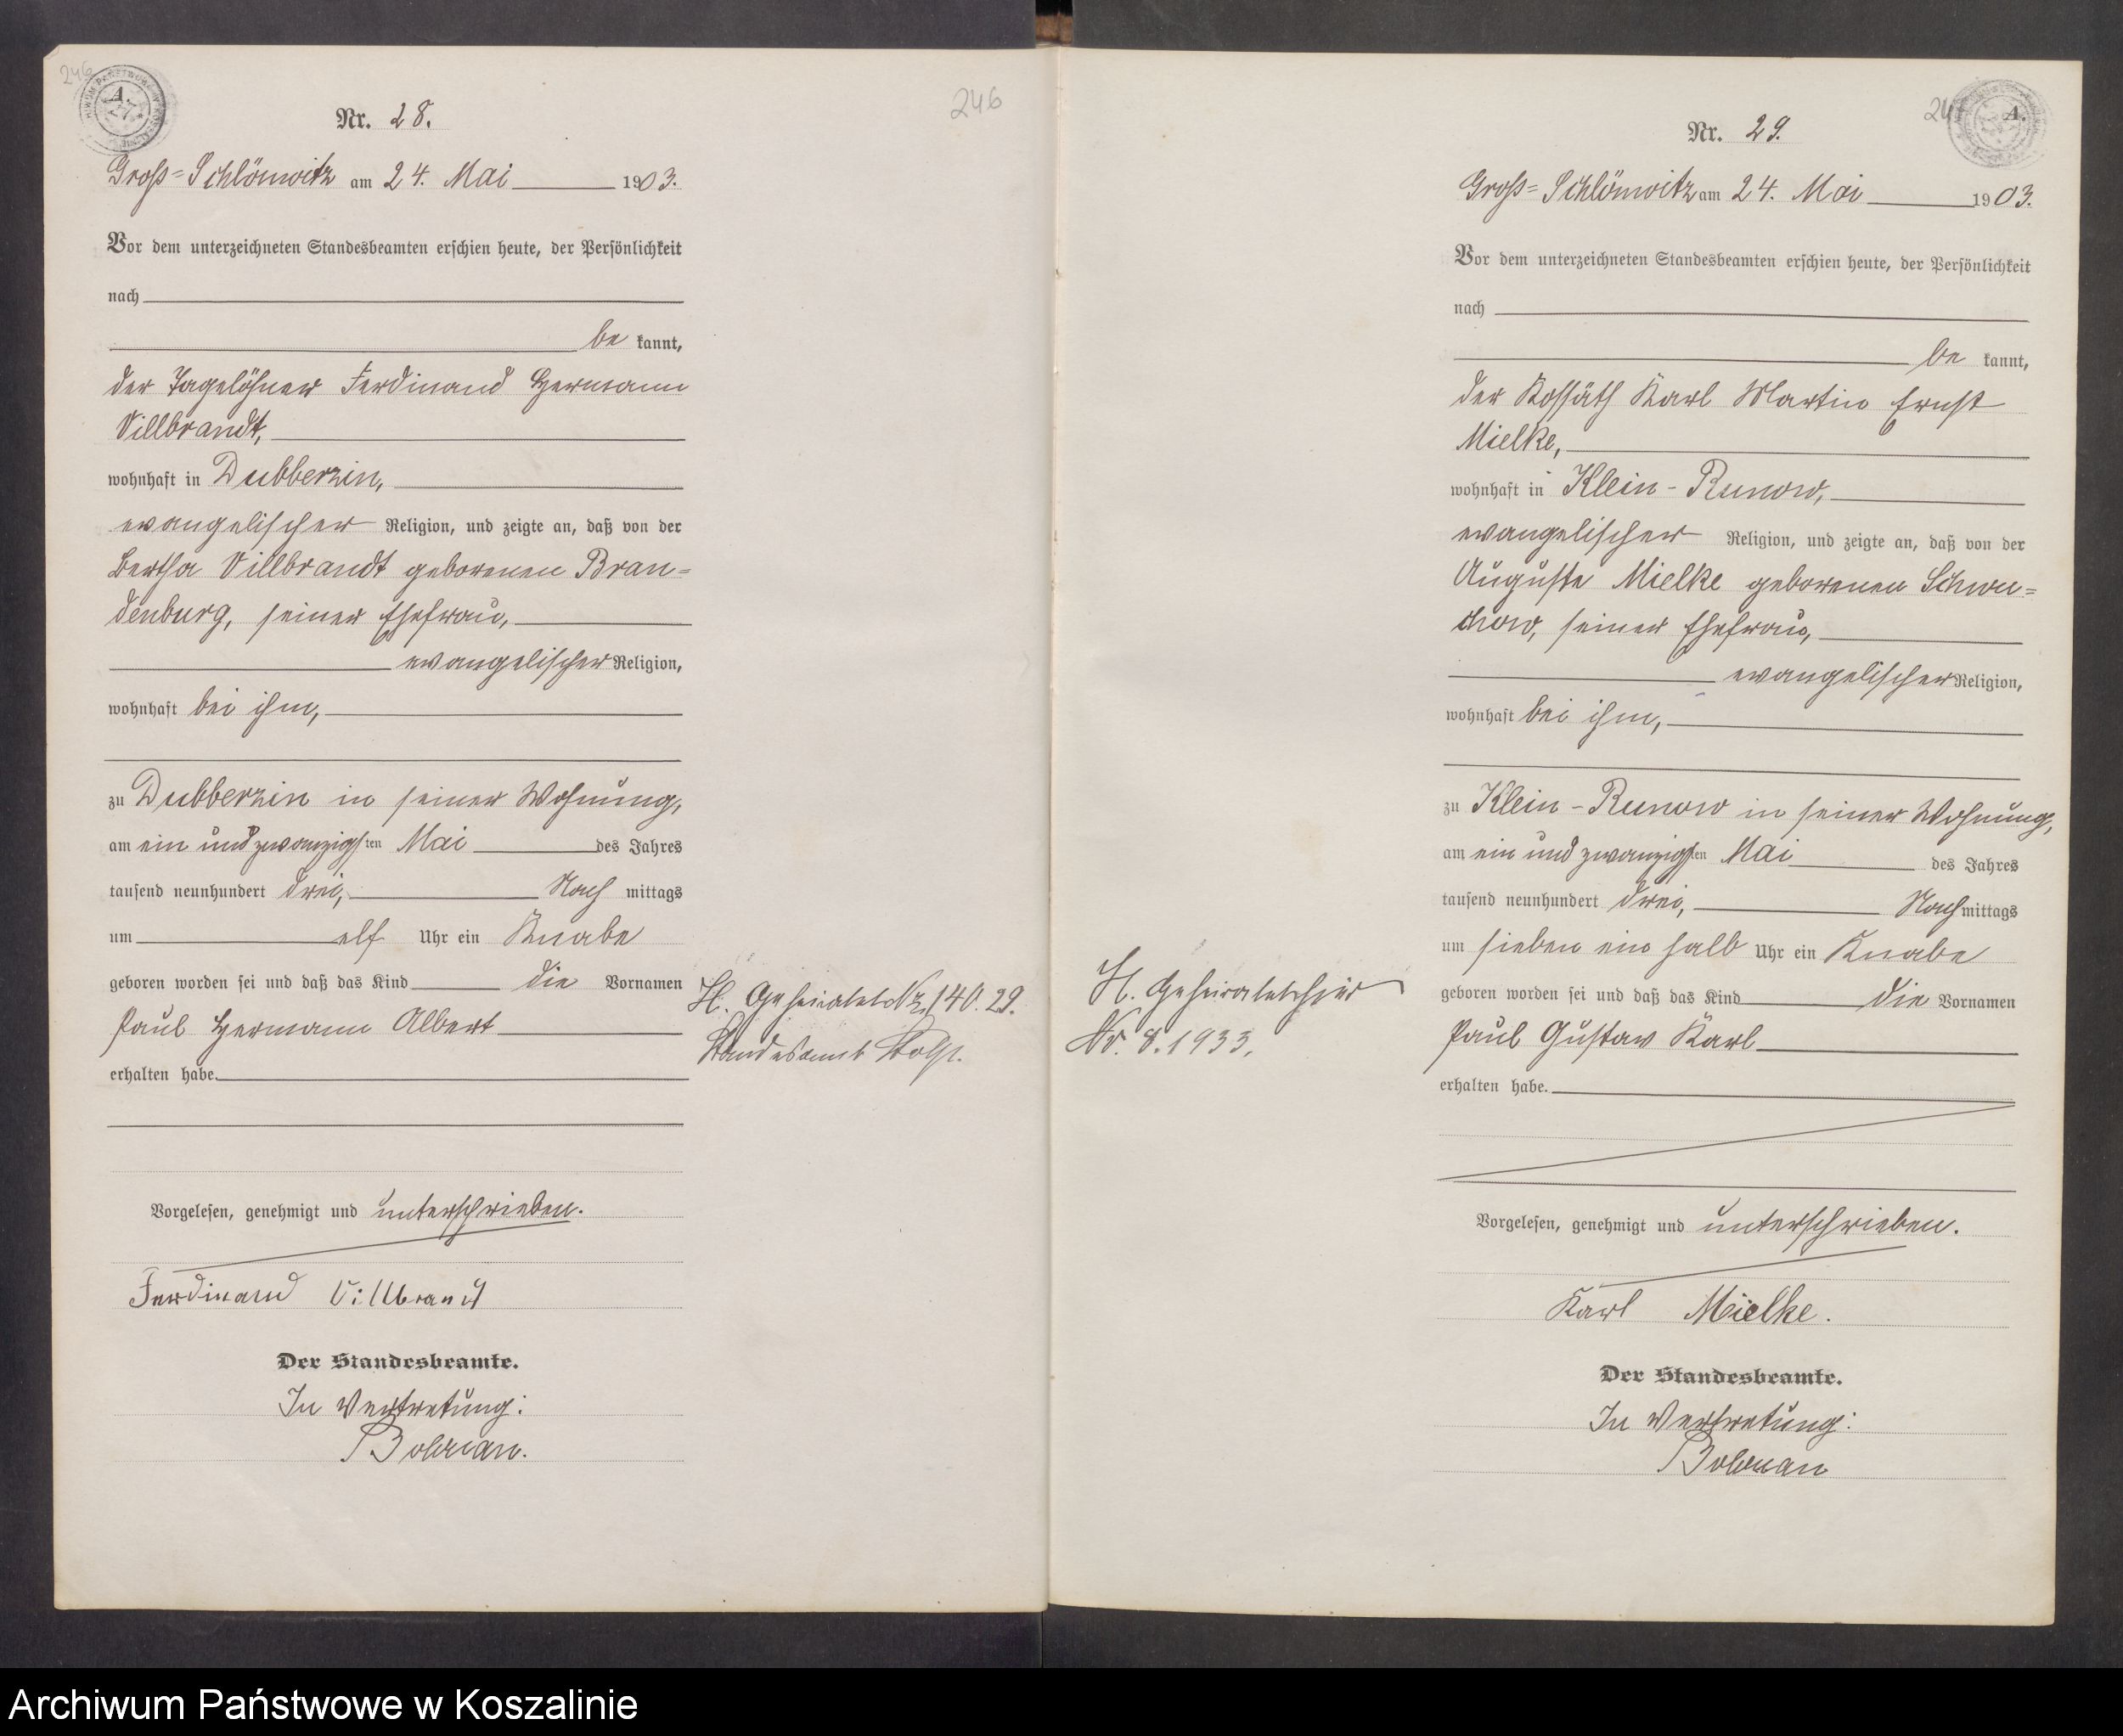 246
A.
Nr. 28.
Groß-Schlönwitz am 24. Mai 1903.
Vor dem unterzeichneten Standesbeamten erschien heute, der Persönlichkeit
nach
be kannt,
der Tagelöhner Ferdinand Hermann
Villbrandt,
wohnhaft in Dubberzin,
evangelischer Religion, und zeigte an, daß von der
Bertha Villbrandt geborenen Bran=
denburg, seiner Ehefrau,
evangelischer Religion,
wohnhaft bei ihm,
zu Dubberzin in seiner Wohnung,
am ein und zwanzigsten Mai des Jahres
tausend neunhundert drei, Nach mittags
um elf Uhr ein Knabe
geboren worden sei und daß das Kind die Vornamen
Paul Hermann Albert
erhalten habe.
Vorgelesen, genehmigt und unterschrieben.
Ferdinand Villbrandt
Der Standesbeamte.
In Vertretung:
246
H. Geheiratet Nr. 140.29.
Standesamt Stolp.
H. Geheiratet hier
Nr. 8. 1933.
A.
Nr. 29.
Groß=Schlönwitz am 24. Mai 1903.
Vor dem unterzeichneten Standesbeamten erschien heute, der Persönlichkeit
nach
be kannt,
der Kossäth Karl Martin Ernst
Mielke,
wohnhaft in Klein-Runow,
evangelischer Religion, und zeigte an, daß von der
Auguste Mielke geborenen Schwu=
chow, seiner Ehefrau,
evangelischer Religion,
wohnhaft bei ihm,
zu Klein-Runow in seiner Wohnung,
am ein und zwanzigsten Mai des Jahres
tausend neunhundert drei, Nachmittags
um sieben ein halb Uhr ein Knabe
geboren worden sei und daß das Kind die Vornamen
Paul Gustav Karl
erhalten habe.
Vorgelesen, genehmigt und unterschrieben.
Karl Mielke.
Der Standesbeamte.
In Vertretung:
Archiwum Państwowe w Koszalinie